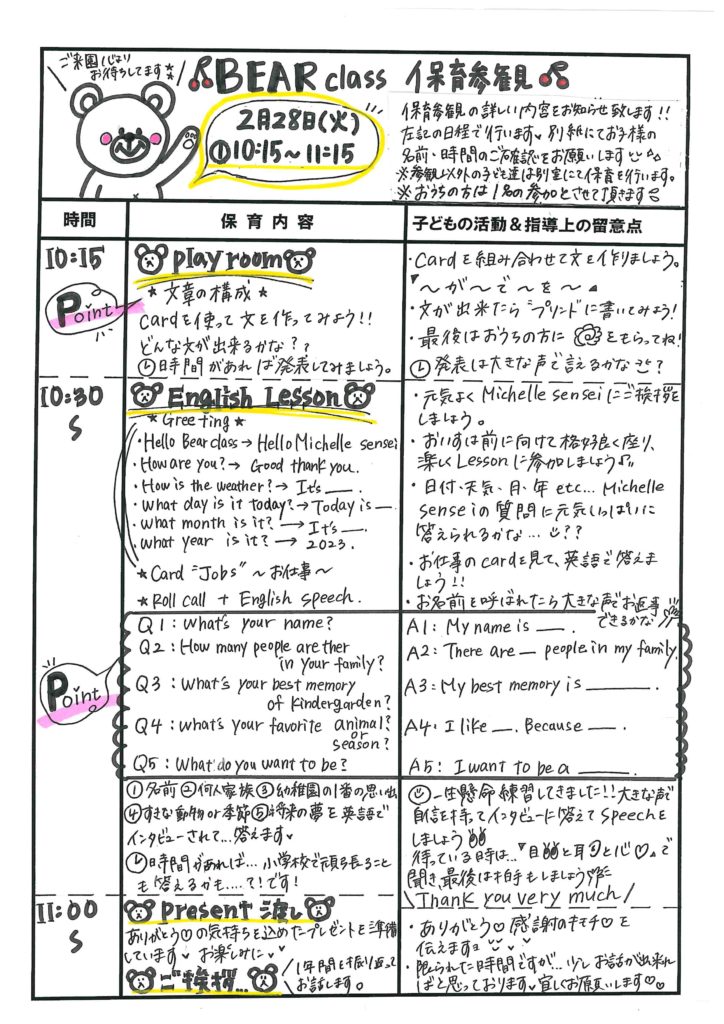 ご来園心より
お待ちしてます
BEAR class 保育参観
2月28日(火)
①10:15~11:15
保育参観の詳しい内容をお知らせ致します!!
左記の日程で行います♥別紙にてお子様の
名前・時間のご確認をお願いします
※参観以外の子ども達は別室にて保育を行います。
※おうちの方は1名の参加とさせて頂きます
時間
保育内容
子どもの活動&指導上の留意点
10:15
Play room
Point
★文章の構成★
Cardを使って文を作ってみよう!!
どんな文が出来るかな??
時間があれば発表してみましょう。
・Cardを組み合わせて文を作りましょう。
「~が~で~を~」
・文が出来たら"プリント"に書いてみよう!
・最後はおうちの方に をもらってね!
発表は大きな声で言えるかな?
10:30
S
English Lesson
★Greeting★
・Hello Bear class→Hello Michelle sensei
・How are you?→Good thank you.
・How is the weather?→It's __.
・What day is it today?→Today is __.
・What month is it?→It's __.
・What year is it?→2023.
★Card "Jobs" ~お仕事~
★Roll call + English speech.
・元気よくMichelle senseiにご挨拶を
しましょう。
・おいすは前に向けて格好良く座り、
楽しくLessonに参加しましょう♪
・日付、天気、月、年etc... Michelle
senseiの質問に元気いっぱいに
答えられるかな...??
・お仕事のcardを見て、英語で答えま
しょう!!
・お名前を呼ばれたら大きな声でお返事
できるかな
Point
Q1: What's your name?
Q2: How many people are ther
in your family?
Q3: What's your best memory
of kindergarden?
Q4: What's your favorite animal?
or
season?
Q5: What do you want to be?
A1: My name is __.
A2: There are __ people in my family.
A3: My best memory is ____.
A4: I like __. Because __.
A5: I want to be a ____.
①名前②何人家族③幼稚園の1番の思い出
④すきな動物or季節⑤将来の夢を英語で
インタビューされて...答えます♥
時間があれば...小学校で頑張ること
も答えるかも....て!です!
一生懸命練習してきました!!大きな声で
自信を持ってインタビューに答えてspeechを
しましょう
待っている時は...「目と耳と心♡」で
聞き、最後は拍手もしましょう
Thank you very much
11:00
S
Present 渡し
ありがとう♡の気持ちを込めたプレゼントを準備
しています♥お楽しみに♥
ご挨拶...
1年間を振り返って
お話します。
・ありがとう♡感謝のキモチ♡を
伝えます
・限られた時間ですが...少しお話が出来れ
ばと思っております♥宜しくお願いします♡♡